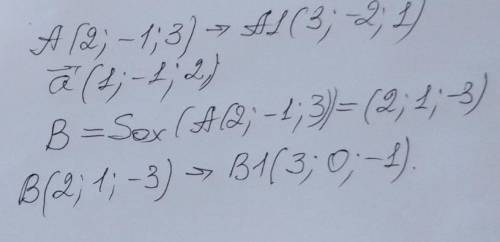 A(2; -1; 3) → A1(3; -2; 1)
a⃗(1; -1; 2)
B = Sox(A(2; -1; 3)) = (2; 1; -3)
B(2; 1; -3) → B1(3; 0; -1).